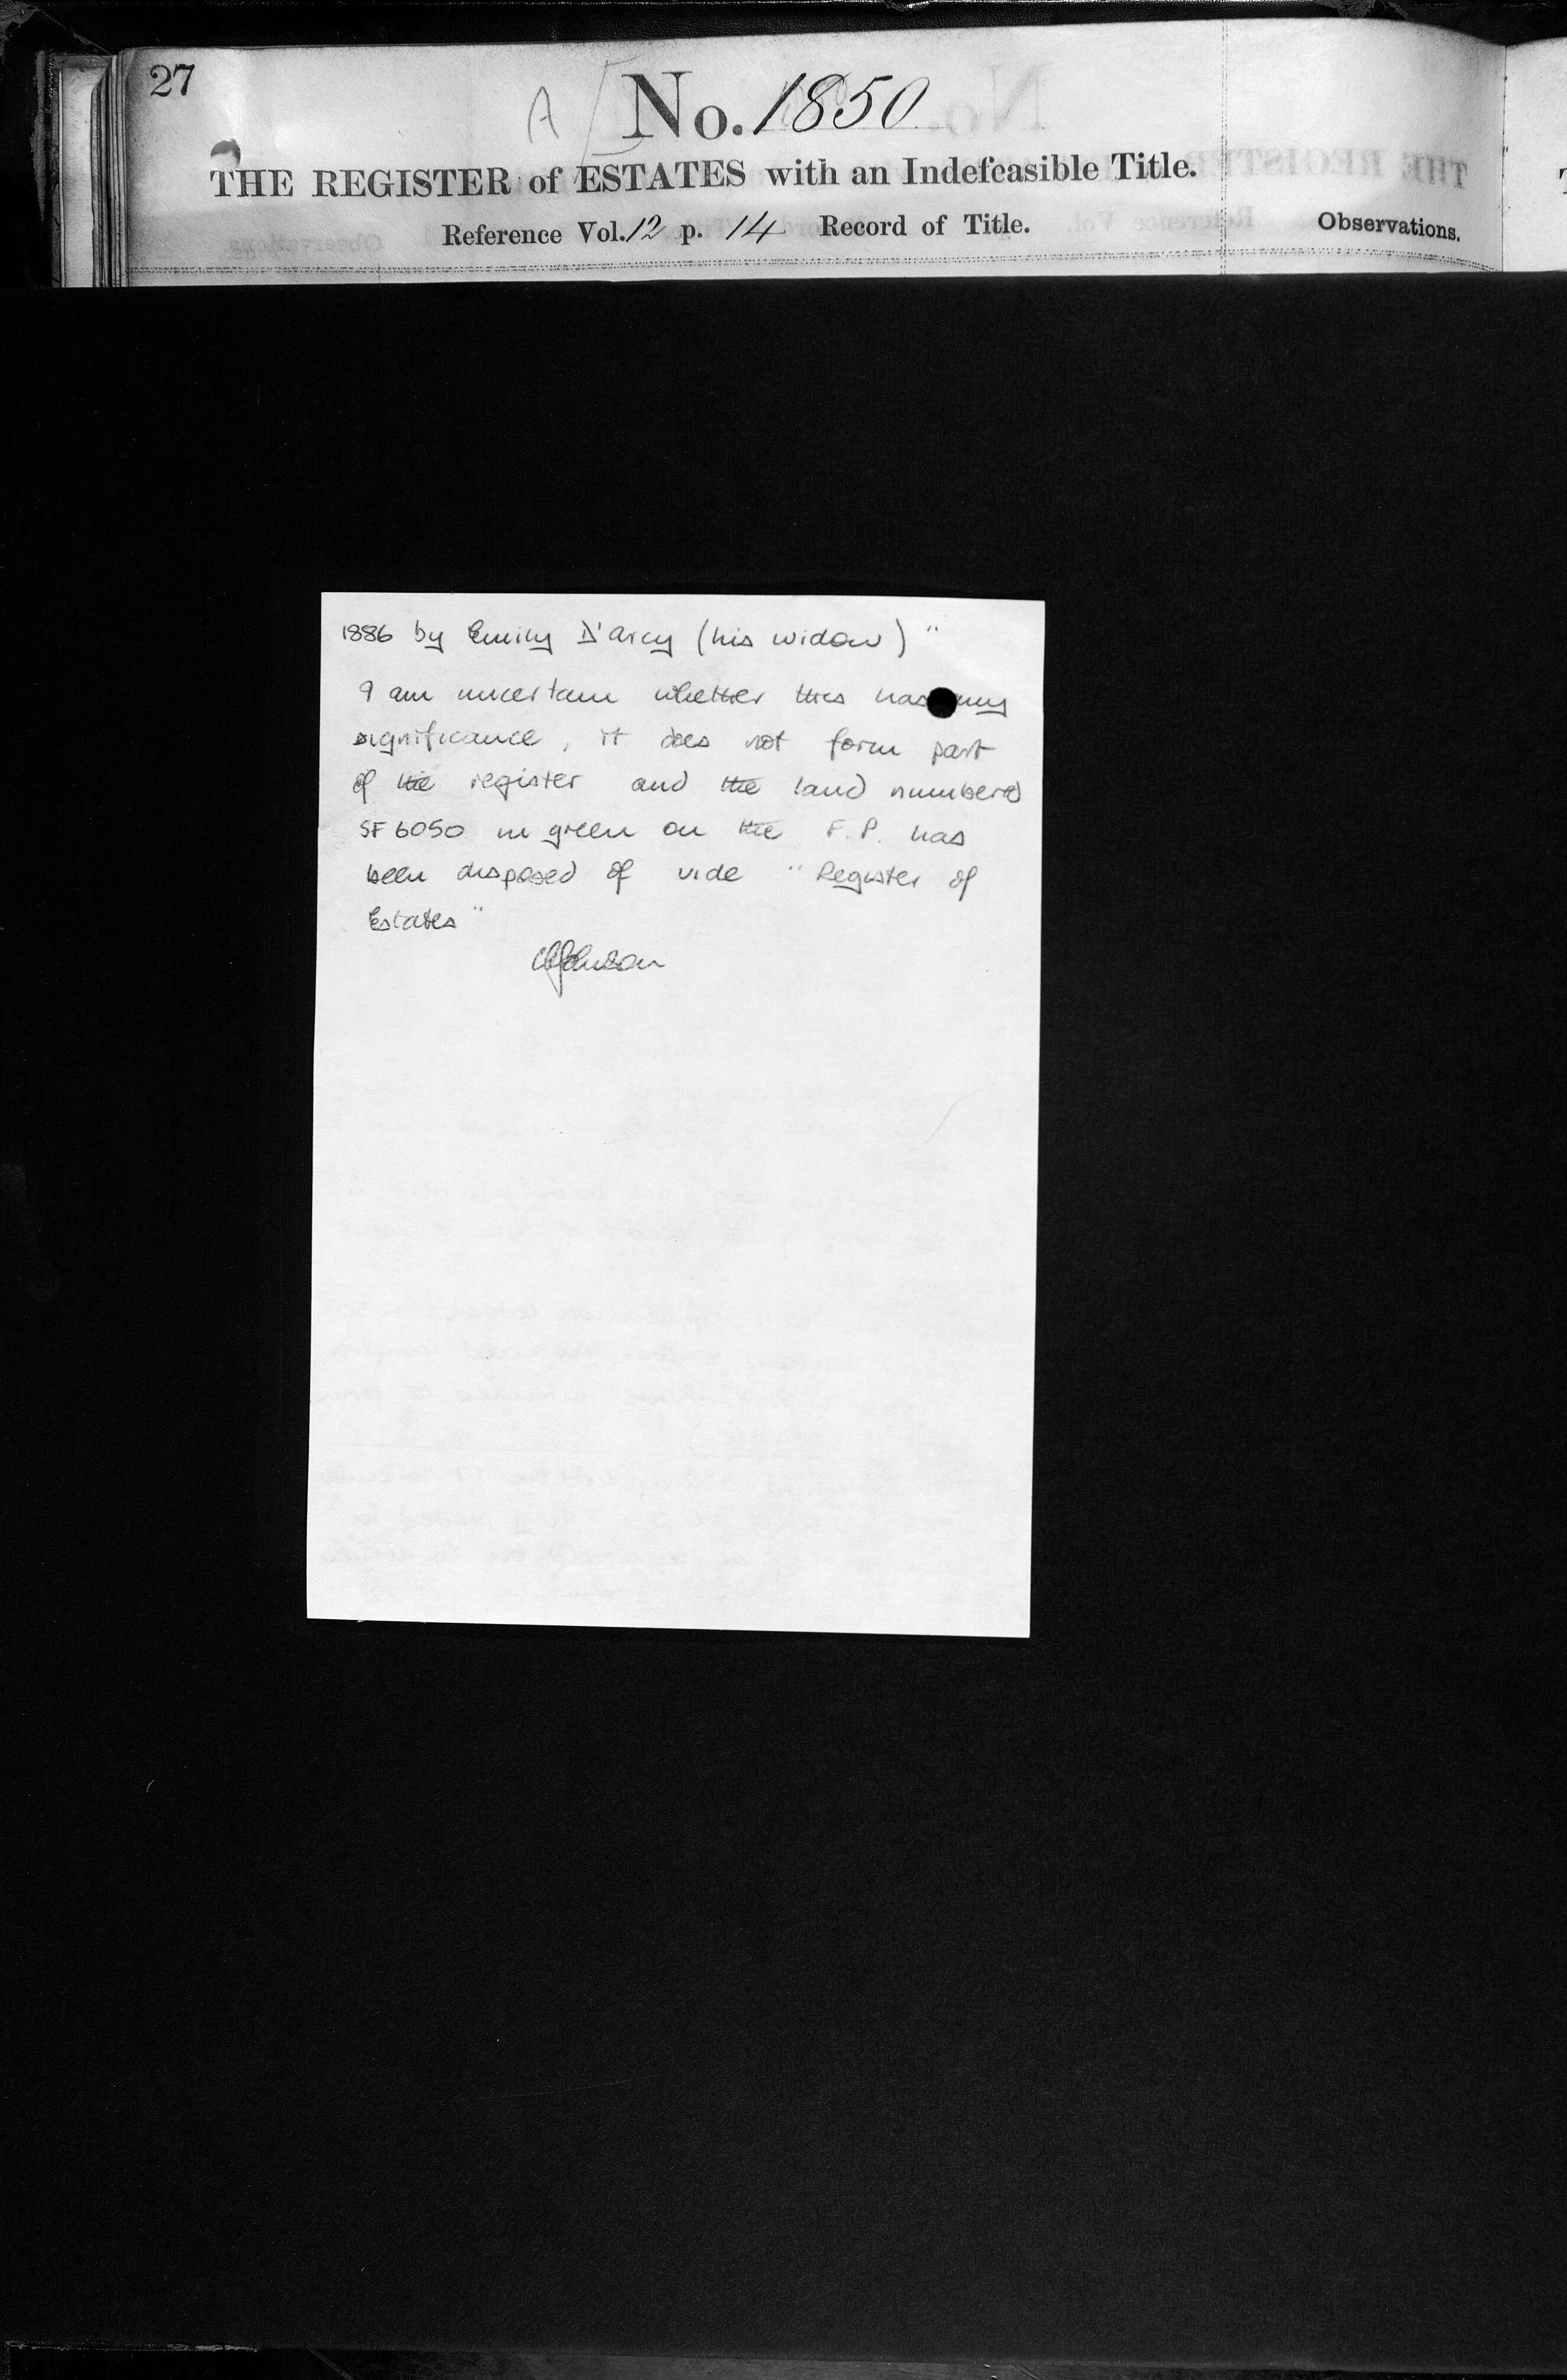 27
A
No. 1850
THE REGISTER of ESTATES with an Indefeasible Title.
Reference Vol. 12 p. 14 Record of Title.
Observations.
1886 by Emily D'arcy (his widow)"
I am uncertain whether this has any
significance, it does not form part
of the register and the land numbered
SF 6050 in green on the F.P. has
been disposed of vide "Register of
Estates"